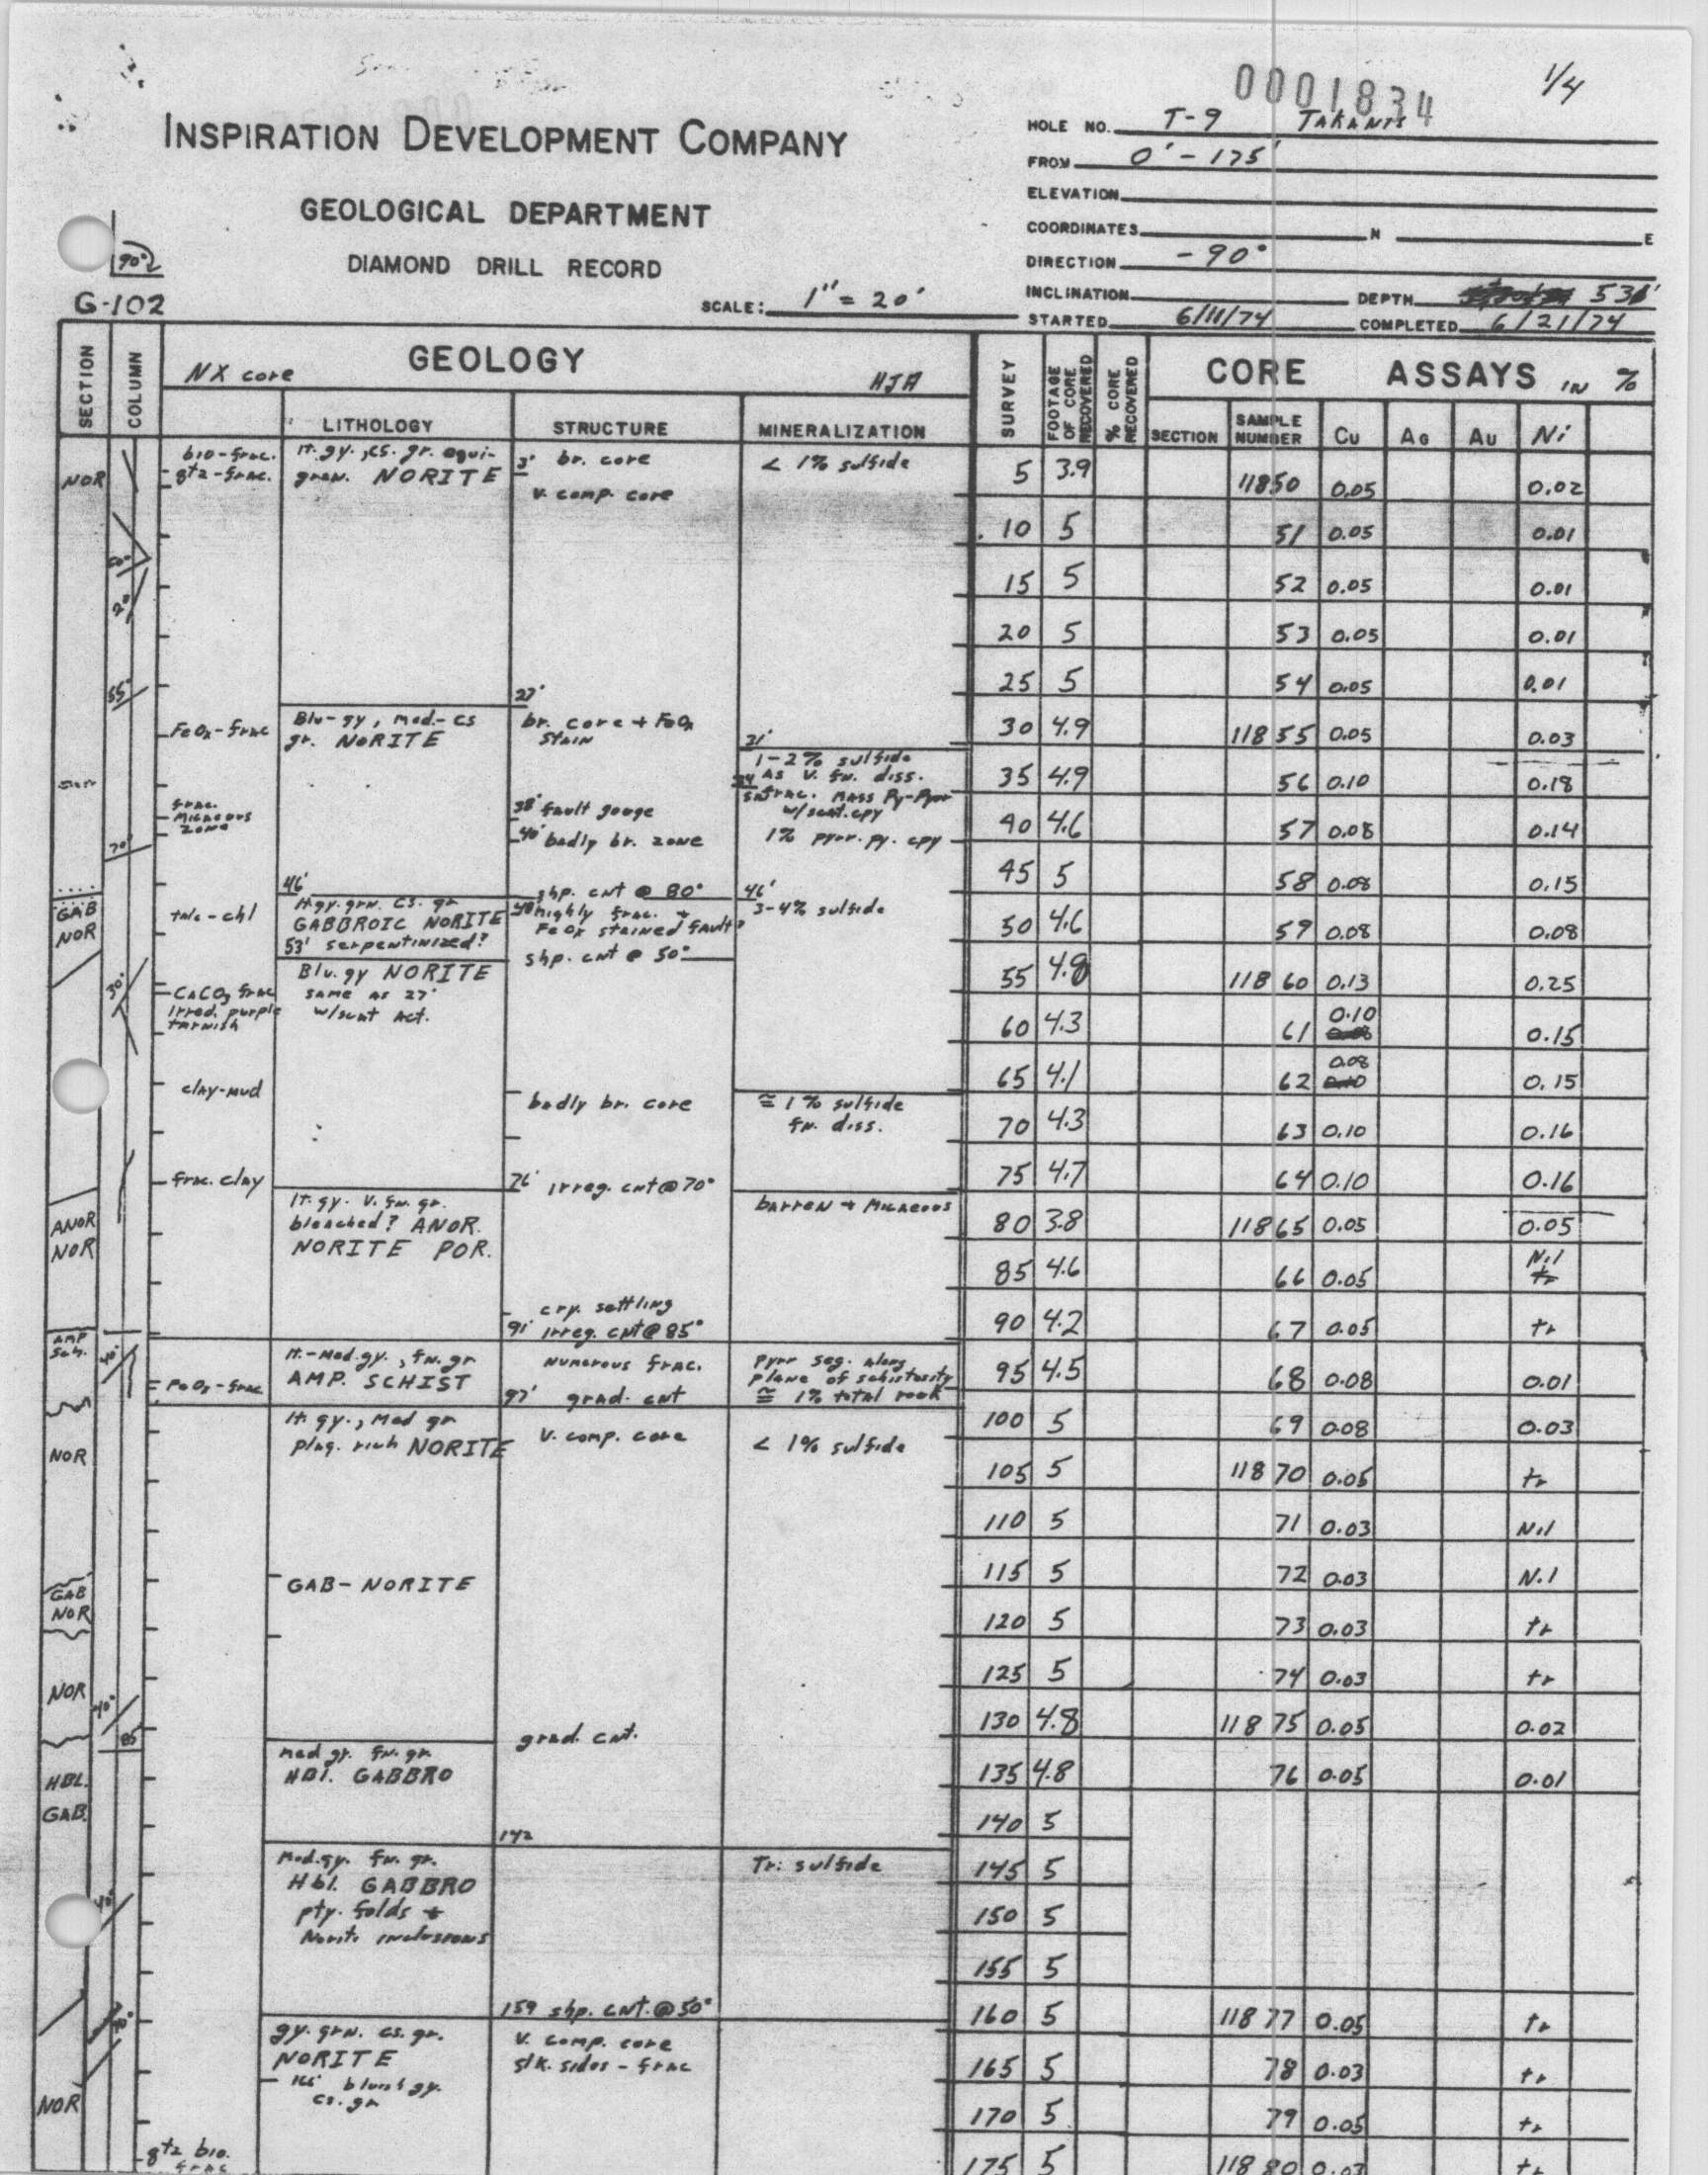 0001834
1/4
INSPIRATION DEVELOPMENT COMPANY
GEOLOGICAL DEPARTMENT
DIAMOND DRILL RECORD
90°
G-102
SCALE: 1" = 20'
HOLE NO. T-9 TAKANIS
FROM 0' - 175'
ELEVATION
COORDINATES N E
DIRECTION -90°
INCLINATION DEPTH 536'
STARTED 6/11/74 COMPLETED 6/21/74
SECTION COLUMN NX core GEOLOGY HJA SURVEY FOOTAGE OF CORE RECOVERED % CORE RECOVERED CORE ASSAYS IN %
LITHOLOGY STRUCTURE MINERALIZATION SECTION SAMPLE NUMBER Cu AG AU Ni
NOR
bio-frac.
qtz-frac.
lt. gy., cs. gr. equi-
gran. NORITE
3' br. core
v. comp. core
< 1% sulfide
5 3.9 11850 0.05 0.02
10 5 51 0.05 0.01
15 5 52 0.05 0.01
20 5 53 0.05 0.01
25 5 54 0.05 0.01
20°
55°
27'
FeOx-frac
Blu-gy, med.-cs
gr. NORITE
br. core + FeOx
stain
31'
1-2% sulfide
as v. fn. diss.
frac. mass Py-Pyrr
w/scat. cpy
1% pyrr. py. cpy
30 4.9 11855 0.05 0.03
35 4.9 56 0.10 0.18
40 4.6 57 0.08 0.14
45 5 58 0.08 0.15
frac.
micaceous
zone
70°
38' fault gouge
40' badly br. zone
GAB
NOR
talc-chl
46'
lt gy. grn. cs. gr
GABBROIC NORITE
53' serpentinized?
shp. cnt @ 80°
48' highly frac. +
FeOx stained fault?
shp. cnt @ 50°
46'
3-4% sulfide
50 4.6 59 0.08 0.08
55 4.8 11860 0.13 0.25
60 4.3 61 0.10 0.15
65 4.1 62 0.08 0.15
30°
CaCO3 frac
irred. purple
tarnish
Blu. gy NORITE
same as 27'
w/scat Act.
clay-mud
badly br. core
≅ 1% sulfide
fn. diss.
70 4.3 63 0.10 0.16
75 4.7 64 0.10 0.16
frac. clay
76' irreg. cnt @ 70°
ANOR
NOR
lt. gy. v. fn. gr.
bleached? ANOR.
NORITE POR.
barren + micaceous
80 3.8 11865 0.05 0.05
85 4.6 66 0.05 Nil
90 4.2 67 0.05 tr
cry. settling
91' irreg. cnt @ 85°
AMP
Sch.
40°
FeOx-frac
lt.-med. gy., fn. gr
AMP. SCHIST
numerous frac.
97' grad. cnt
Pyrr seg. along
plane of schistosity
≅ 1% total rock
95 4.5 68 0.08 0.01
100 5 69 0.08 0.03
NOR
lt. gy., med gr
plag. rich NORITE
v. comp. core
< 1% sulfide
105 5 11870 0.05 tr
110 5 71 0.03 Nil
115 5 72 0.03 Nil
120 5 73 0.03 tr
125 5 74 0.03 tr
130 4.8 11875 0.05 0.02
135 4.8 76 0.05 0.01
GAB
NOR
GAB-NORITE
NOR
40°
85
grad. cnt.
HBL.
GAB.
med gy. fn. gr
HBl. GABBRO
140 5
142
Med. gy. fn. gr.
Hbl. GABBRO
pty. folds +
Norite inclusions
Tr. sulfide
145 5
150 5
155 5
40°
159 shp. cnt. @ 50°
160 5 11877 0.05 tr
165 5 78 0.03 tr
170 5 79 0.05 tr
175 5 11880 0.03 tr
NOR
gy. grn. cs. gr.
NORITE
166' bluish gy.
cs. gr
v. comp. core
slk. sides - frac
qtz bio.
frac